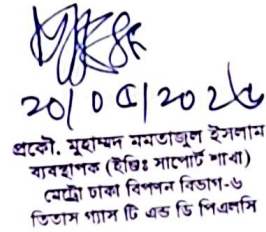 20/05/2026
প্রকৌ. মুহাম্মদ মমতাজুল ইসলাম
ব্যবস্থাপক (ইভিঃ সাপোর্ট শাখা)
মেট্রো ঢাকা বিপণন বিভাগ-৬
তিতাস গ্যাস টি এন্ড ডি পিএলসি